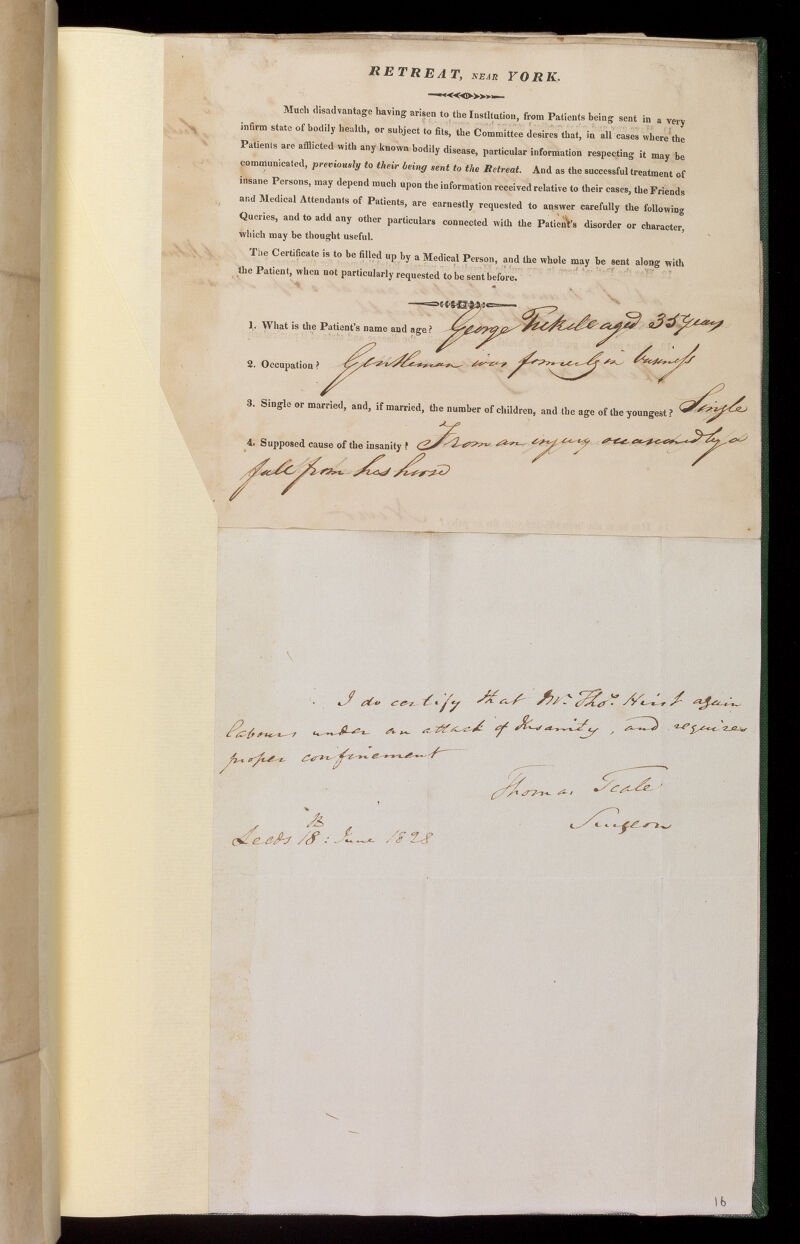 RETREAT, NEAR YORK.
Much disadvantage having arisen to the Institution, from Patients being sent in a very
infirm state of bodily health, or subject to fits, the Committee desires that, in all cases where the
Patients are afflicted with any known bodily disease, particular information respecting it may be
communicated, previously to their being sent to the Retreat. And as the successful treatment of
insane Persons, may depend much upon the information received relative to their cases, the Friends
and Medical Attendants of Patients, are earnestly requested to answer carefully the following
Queries, and to add any other particulars connected with the Patient's disorder or character,
which may be thought useful.
The Certificate is to be filled up by a Medical Person, and the whole may be sent along with
the Patient, when not particularly requested to be sent before.
1. What is the Patient's name and age? George aged 35 years
2. Occupation? Gentleman was formerly in business
3. Single or married, and, if married, the number of children, and the age of the youngest? Single
4. Supposed cause of the insanity? From an injury occasioned by a
fall from his horse
I do certify that Mr. Thos. Hirst again
labours under an attack of Insanity, and requires
proper confinement
Thomas Teale
Surgeon
Leeds 18th: June 1828
16